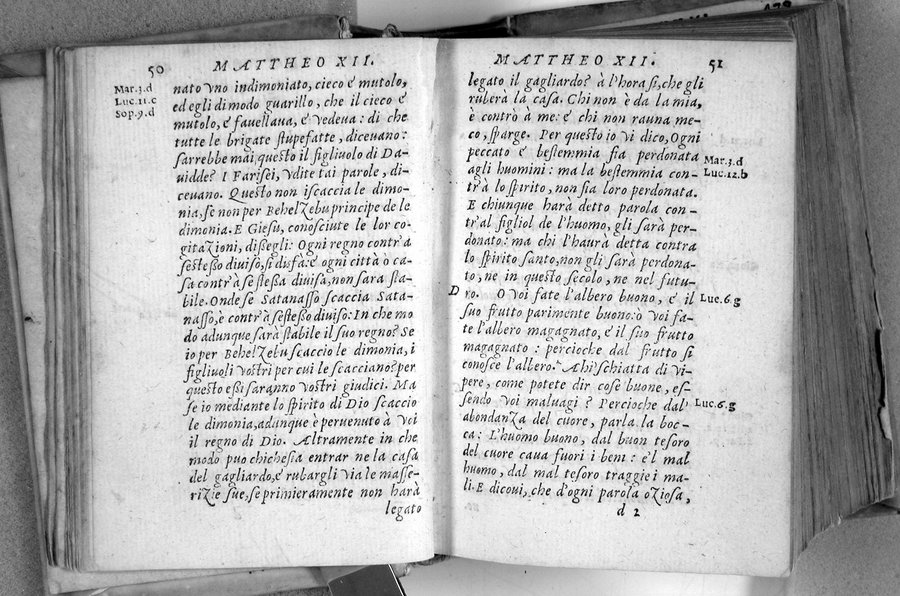 50 MATTHEO XII.
Mar.3.d
Luc.11.c
Sop.9.d
nato vno indimoniato, cieco e mutolo,
ed egli di modo guarillo, che il cieco e
mutolo, e fauellaua, e vedeua: di che
tutte le brigate stupefatte, diceuano:
sarrebbe mai questo il figliuolo di Da-
uidde? I Farisei, vdite tai parole, di-
ceuano. Questo non iscaccia le dimo-
nia, se non per BehelZebu principe de le
dimonia. E Giesu, conosciute le lor co-
gitazioni, dißegli: Ogni regno contr'a
sestesso diuiso, si disfà: e ogni città o ca-
sa contr'a se stessa diuisa, non sara sta-
bile. Onde se Satanasso scaccia Sata-
nasso, è contr'a sestesso diuiso: In che mo
do adunque sarà stabile il suo regno? Se
io per BehelZebu scaccio le dimonia, i
figliuoli vostri per cui le scacciano? per
questo eßi saranno vostri giudici. Ma
se io mediante lo spirito di Dio scaccio
le dimonia, adunque è peruenuto à voi
il regno di Dio. Altramente in che
modo puo chichesia entrar ne la casa
del gagliardo, e rubargli via le masse-
rizie sue, se primieramente non harà
legato
MATTHEO XII. 51
legato il gagliardo? à l'hora si, che gli
ruberà la casa. Chi non è da la mia,
è contrò à me: e chi non rauna me-
co, sparge. Per questo io vi dico, Ogni
peccato e bestemmia fia perdonata
agli huomini: ma la bestemmia con-
tr'à lo spirito, non fia loro perdonata.
E chiunque harà detto parola con-
tr'al figliol de l'huomo, gli sarà per-
donato: ma chi l'haurà detta contra
lo spirito santo, non gli sarà perdona-
to, ne in questo secolo, ne nel futu-
ro. O voi fate l'albero buono, e il
suo frutto parimente buono: ò voi fa-
te l'albero magagnato, e il suo frutto
magagnato: percioche dal frutto si
conosce l'albero. Ahi schiatta di vi-
pere, come potete dir cose buone, es-
sendo voi maluagi? Percioche dal
abondanza del cuore, parla la boc-
ca: L'huomo buono, dal buon tesoro
del cuore caua fuori i beni: e'l mal
huomo, dal mal tesoro traggie i ma-
li. E dicoui, che d'ogni parola oziosa,
d 2
Mar.3.d
Luc.12.b
D
Luc.6.g
Luc.6.g